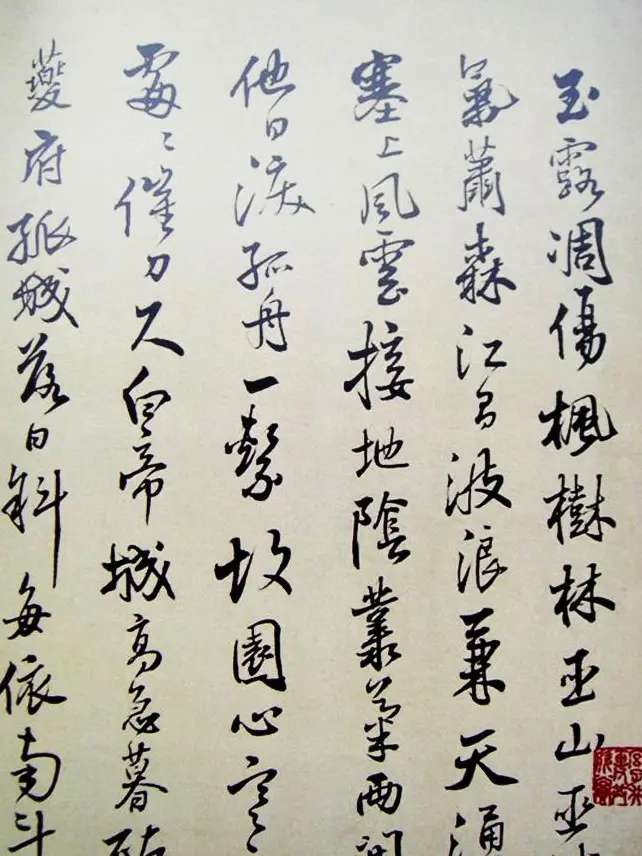 玉露凋傷楓樹林巫山巫
氣蕭森江間波浪兼天涌
塞上風雲接地陰叢菊兩開
他日淚孤舟一繫故園心寒
處〻催刀尺白帝城高急暮砧
夔府孤城落日斜每依南斗